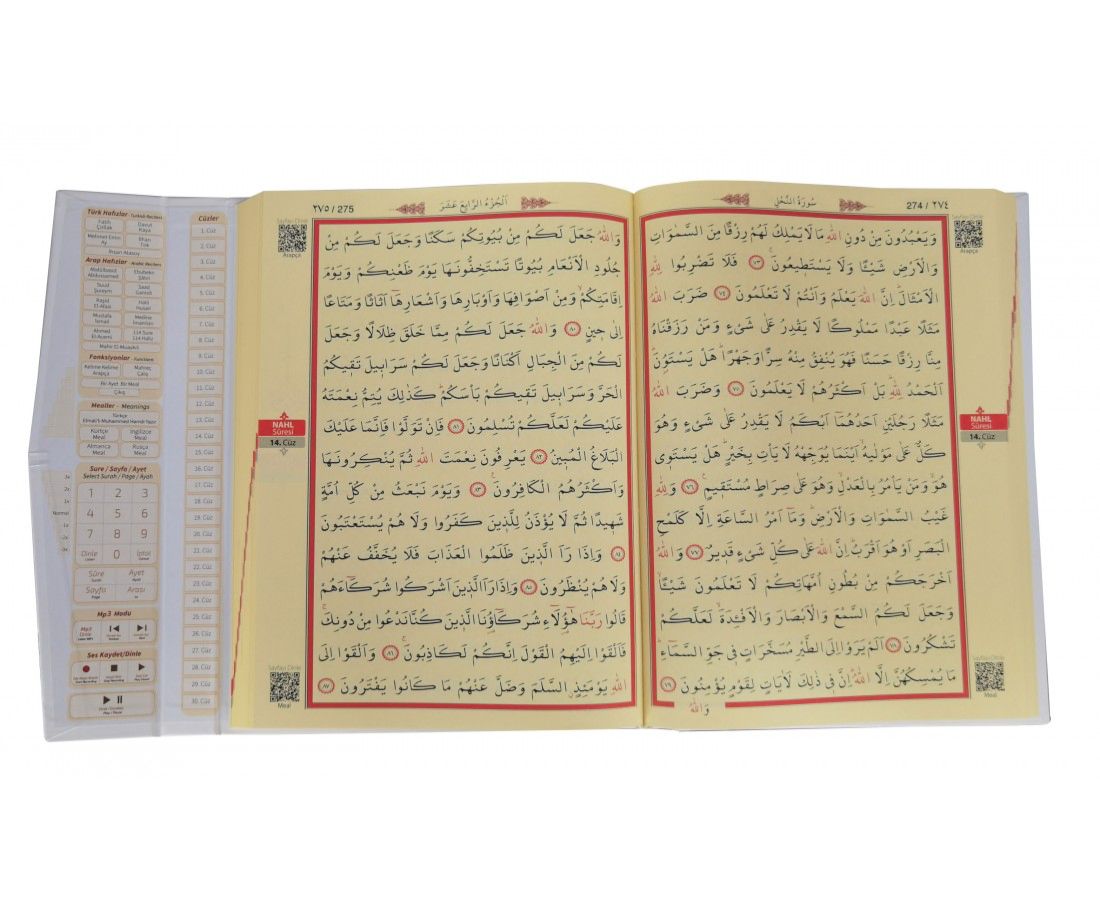 Türk Hafızlar - Turkish Reciters
Fatih Çollak
Davut Kaya
Mehmet Emin Ay
İlhan Tok
İhsan Atasoy
Arap Hafızlar - Arabic Reciters
Abdülbasid Abdussamed
Ebubekir Şatiri
Suud Şureym
Saad Gamidi
Raşid El-Afasi
Hani
Mustafa İsmail
Medine İmamları
Ahmed El-Acemi
Mahir El-Muaykıli
Fonksiyonlar - Function
Kelime Kelime Arapça
Mahreç Çalış
Bir Ayet, Bir Meal
Çıkış
Mealler - Meanings
Türkçe
Elmalı'lı Muhammed Hamdi Yazır
Kürtçe Meal
İngilizce Meal
Almanca Meal
Rusça Meal
Sure / Sayfa / Ayet
Select Surah / Page / Ayah
1 2 3
4 5 6
7 8 9
Dinle 0 İptal
Sûre Ayet
Sayfa Arası
Mp3 Modu
Mp3 Dinle
Ses Kaydet/Dinle
Normal
Cüzler
1. Cüz
2. Cüz
3. Cüz
4. Cüz
5. Cüz
6. Cüz
7. Cüz
8. Cüz
9. Cüz
10. Cüz
11. Cüz
12. Cüz
13. Cüz
14. Cüz
15. Cüz
16. Cüz
17. Cüz
18. Cüz
19. Cüz
20. Cüz
21. Cüz
22. Cüz
23. Cüz
24. Cüz
25. Cüz
26. Cüz
27. Cüz
28. Cüz
29. Cüz
30. Cüz
274 / ٢٧٤
سُورَةُ النَّحْلِ
وَيَعْبُدُونَ مِنْ دُونِ اللّٰهِ مَا لَا يَمْلِكُ لَهُمْ رِزْقًا مِنَ السَّمٰوَاتِ
وَالْاَرْضِ شَيْـًٔا وَلَا يَسْتَط۪يعُونَ ﴿٧٣﴾ فَلَا تَضْرِبُوا لِلّٰهِ
الْاَمْثَالَۜ اِنَّ اللّٰهَ يَعْلَمُ وَاَنْتُمْ لَا تَعْلَمُونَ ﴿٧٤﴾ ضَرَبَ اللّٰهُ
مَثَلًا عَبْدًا مَمْلُوكًا لَا يَقْدِرُ عَلٰى شَيْءٍ وَمَنْ رَزَقْنَاهُ
مِنَّا رِزْقًا حَسَنًا فَهُوَ يُنْفِقُ مِنْهُ سِرًّا وَجَهْرًاۜ هَلْ يَسْتَوُ۫نَۜ
اَلْحَمْدُ لِلّٰهِۜ بَلْ اَكْثَرُهُمْ لَا يَعْلَمُونَ ﴿٧٥﴾ وَضَرَبَ اللّٰهُ
مَثَلًا رَجُلَيْنِ اَحَدُهُمَٓا اَبْكَمُ لَا يَقْدِرُ عَلٰى شَيْءٍ وَهُوَ
كَلٌّ عَلٰى مَوْلٰيهُۙ اَيْنَمَا يُوَجِّهْهُ لَا يَأْتِ بِخَيْرٍۜ هَلْ يَسْتَو۪ي
هُوَۙ وَمَنْ يَأْمُرُ بِالْعَدْلِۙ وَهُوَ عَلٰى صِرَاطٍ مُسْتَق۪يمٍ۟ ﴿٧٦﴾ وَلِلّٰهِ
غَيْبُ السَّمٰوَاتِ وَالْاَرْضِۜ وَمَٓا اَمْرُ السَّاعَةِ اِلَّا كَلَمْحِ
الْبَصَرِ اَوْ هُوَ اَقْرَبُۜ اِنَّ اللّٰهَ عَلٰى كُلِّ شَيْءٍ قَد۪يرٌ ﴿٧٧﴾ وَاللّٰهُ
اَخْرَجَكُمْ مِنْ بُطُونِ اُمَّهَاتِكُمْ لَا تَعْلَمُونَ شَيْـًٔاۙ
وَجَعَلَ لَكُمُ السَّمْعَ وَالْاَبْصَارَ وَالْاَفْـِٔدَةَۙ لَعَلَّكُمْ
تَشْكُرُونَ ﴿٧٨﴾ اَلَمْ يَرَوْا اِلَى الطَّيْرِ مُسَخَّرَاتٍ ف۪ي جَوِّ السَّمَٓاءِۜ
مَا يُمْسِكُهُنَّ اِلَّا اللّٰهُۜ اِنَّ ف۪ي ذٰلِكَ لَاٰيَاتٍ لِقَوْمٍ يُؤْمِنُونَ ﴿٧٩﴾
وَاللّٰهُ
Arapça
NAHL
Sûresi
14. Cüz
Sayfayı Dinle
Meal
٢٧٥ / 275
اَلْجُزْءُ الرَّابِعَ عَشَرَ
وَاللّٰهُ جَعَلَ لَكُمْ مِنْ بُيُوتِكُمْ سَكَنًا وَجَعَلَ لَكُمْ مِنْ
جُلُودِ الْاَنْعَامِ بُيُوتًا تَسْتَخِفُّونَهَا يَوْمَ ظَعْنِكُمْ وَيَوْمَ
اِقَامَتِكُمْۙ وَمِنْ اَصْوَافِهَا وَاَوْبَارِهَا وَاَشْعَارِهَٓا اَثَاثًا وَمَتَاعًا
اِلٰى ح۪ينٍ ﴿٨٠﴾ وَاللّٰهُ جَعَلَ لَكُمْ مِمَّا خَلَقَ ظِلَالًا وَجَعَلَ
لَكُمْ مِنَ الْجِبَالِ اَكْنَانًا وَجَعَلَ لَكُمْ سَرَاب۪يلَ تَق۪يكُمُ
الْحَرَّ وَسَرَاب۪يلَ تَق۪يكُمْ بَأْسَكُمْۜ كَذٰلِكَ يُتِمُّ نِعْمَتَهُ
عَلَيْكُمْ لَعَلَّكُمْ تُسْلِمُونَ ﴿٨١﴾ فَاِنْ تَوَلَّوْا فَاِنَّمَا عَلَيْكَ
الْبَلَاغُ الْمُب۪ينُ ﴿٨٢﴾ يَعْرِفُونَ نِعْمَتَ اللّٰهِ ثُمَّ يُنْكِرُونَهَا
وَاَكْثَرُهُمُ الْكَافِرُونَ۟ ﴿٨٣﴾ وَيَوْمَ نَبْعَثُ مِنْ كُلِّ اُمَّةٍ
شَه۪يدًا ثُمَّ لَا يُؤْذَنُ لِلَّذ۪ينَ كَفَرُوا وَلَا هُمْ يُسْتَعْتَبُونَ
﴿٨٤﴾ وَاِذَا رَاَ الَّذ۪ينَ ظَلَمُوا الْعَذَابَ فَلَا يُخَفَّفُ عَنْهُمْ
وَلَا هُمْ يُنْظَرُونَ ﴿٨٥﴾ وَاِذَا رَاَ الَّذ۪ينَ اَشْرَكُوا شُرَكَٓاءَهُمْ
قَالُوا رَبَّنَا هٰٓؤُ۬لَٓاءِ شُرَكَٓاؤُ۬نَا الَّذ۪ينَ كُنَّا نَدْعُوا مِنْ دُونِكَۚ
فَاَلْقَوْا اِلَيْهِمُ الْقَوْلَ اِنَّكُمْ لَكَاذِبُونَۚ ﴿٨٦﴾ وَاَلْقَوْا اِلَى
اللّٰهِ يَوْمَئِذٍۨ السَّلَمَ وَضَلَّ عَنْهُمْ مَا كَانُوا يَفْتَرُونَ ﴿٨٧﴾
Sayfayı Dinle
Arapça
NAHL
Sûresi
14. Cüz
Sayfayı Dinle
Meal